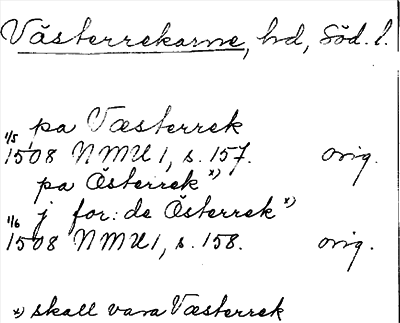 Västerrekarne, hd, Söd. l.
pa Væsterrek
1/5 1508 NMU 1, s. 157. orig.
pa Österrek x)
j for: de Österrek x)
1/6 1508 NMU 1, s. 158. orig.
x) skall vara Væsterrek